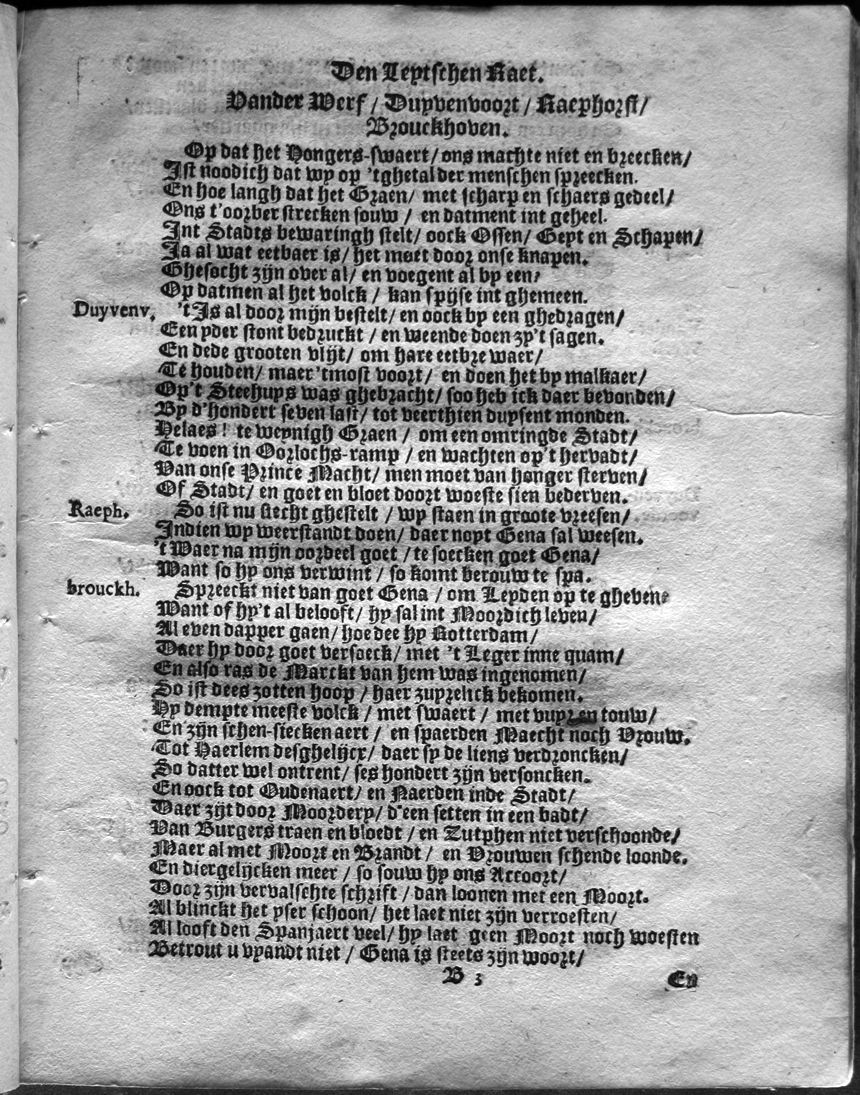 Den Leytschen Raet.
Vander Werf / Duyvenvoort / Raephorst /
Brouckhoven.
Op dat het Hongers-swaert / ons machte niet en breecken /
Ist noodich dat wy op 'tghetal der menschen spreecken.
En hoe langh dat het Graen / met scharp en schaers gedeel /
Ons t'oorber strecken souw / en datment int geheel.
Int Stadts bewaringh stelt / oock Ossen / Geyt en Schapen /
Ja al wat eetbaer is / het moet door onse knapen.
Ghesocht zijn over al / en voegent al by een /
Op datmen al het volck / kan spijse int ghemeen.
Duyvenv. 't Is al door mijn bestelt / en oock by een ghedragen /
Een yder stont bedruckt / en weende doen zy't sagen.
En dede grooten vlijt / om hare eetbre waer /
Te houden / maer 'tmost voort / en doen het by malkaer /
Op't Steehuys was ghebracht / soo heb ick daer bevonden /
By d'hondert seven last / tot veerthien duysent monden.
Helaes! te weynigh Graen / om een omringde Stadt /
Te voen in Oorlochs-ramp / en wachten op't hervadt /
Van onse Prince Macht / men moet van honger sterven /
Of Stadt / en goet en bloet doort woeste sien bederven.
Raeph. So ist nu slecht ghestelt / wy staen in groote vreesen /
Indien wy weerstandt doen / daer noyt Gena sal weesen.
't Waer na mijn oordeel goet / te soecken goet Gena /
Want so hy ons verwint / so komt berouw te spa.
brouckh. Spreeckt niet van goet Gena / om Leyden op te gheven
Want of hy't al belooft / hy sal int Moordich leven /
Al even dapper gaen / hoe dee hy Rotterdam /
Daer hy door goet versoeck / met 't Leger inne quam /
En also ras de Marckt van hem was ingenomen /
So ist dees zotten hoop / haer zuyrelick bekomen.
Hy dempte meeste volck / met swaert / met vuyr en touw /
En zijn schen-stecken aert / en spaerden Maecht noch Vrouw.
Tot Haerlem desghelijcx / daer sy de liens verdroncken /
So datter wel ontrent / ses hondert zijn versoncken.
En oock tot Oudenaert / en Naerden inde Stadt /
Daer zijt door Moordery / d'een setten in een badt /
Van Burgers traen en bloedt / en Zutphen niet verschoonde /
Maer al met Moort en Brandt / en Vrouwen schende loonde.
En diergelijcken meer / so souw hy ons Accoort /
Door zijn vervalschte schrift / dan loonen met een Moort.
Al blinckt het yser schoon / het laet niet zijn verroesten /
Al looft den Spanjaert veel / hy laet geen Moort noch woesten
Betrout u vyandt niet / Gena is steets zijn woort /
B 3 En